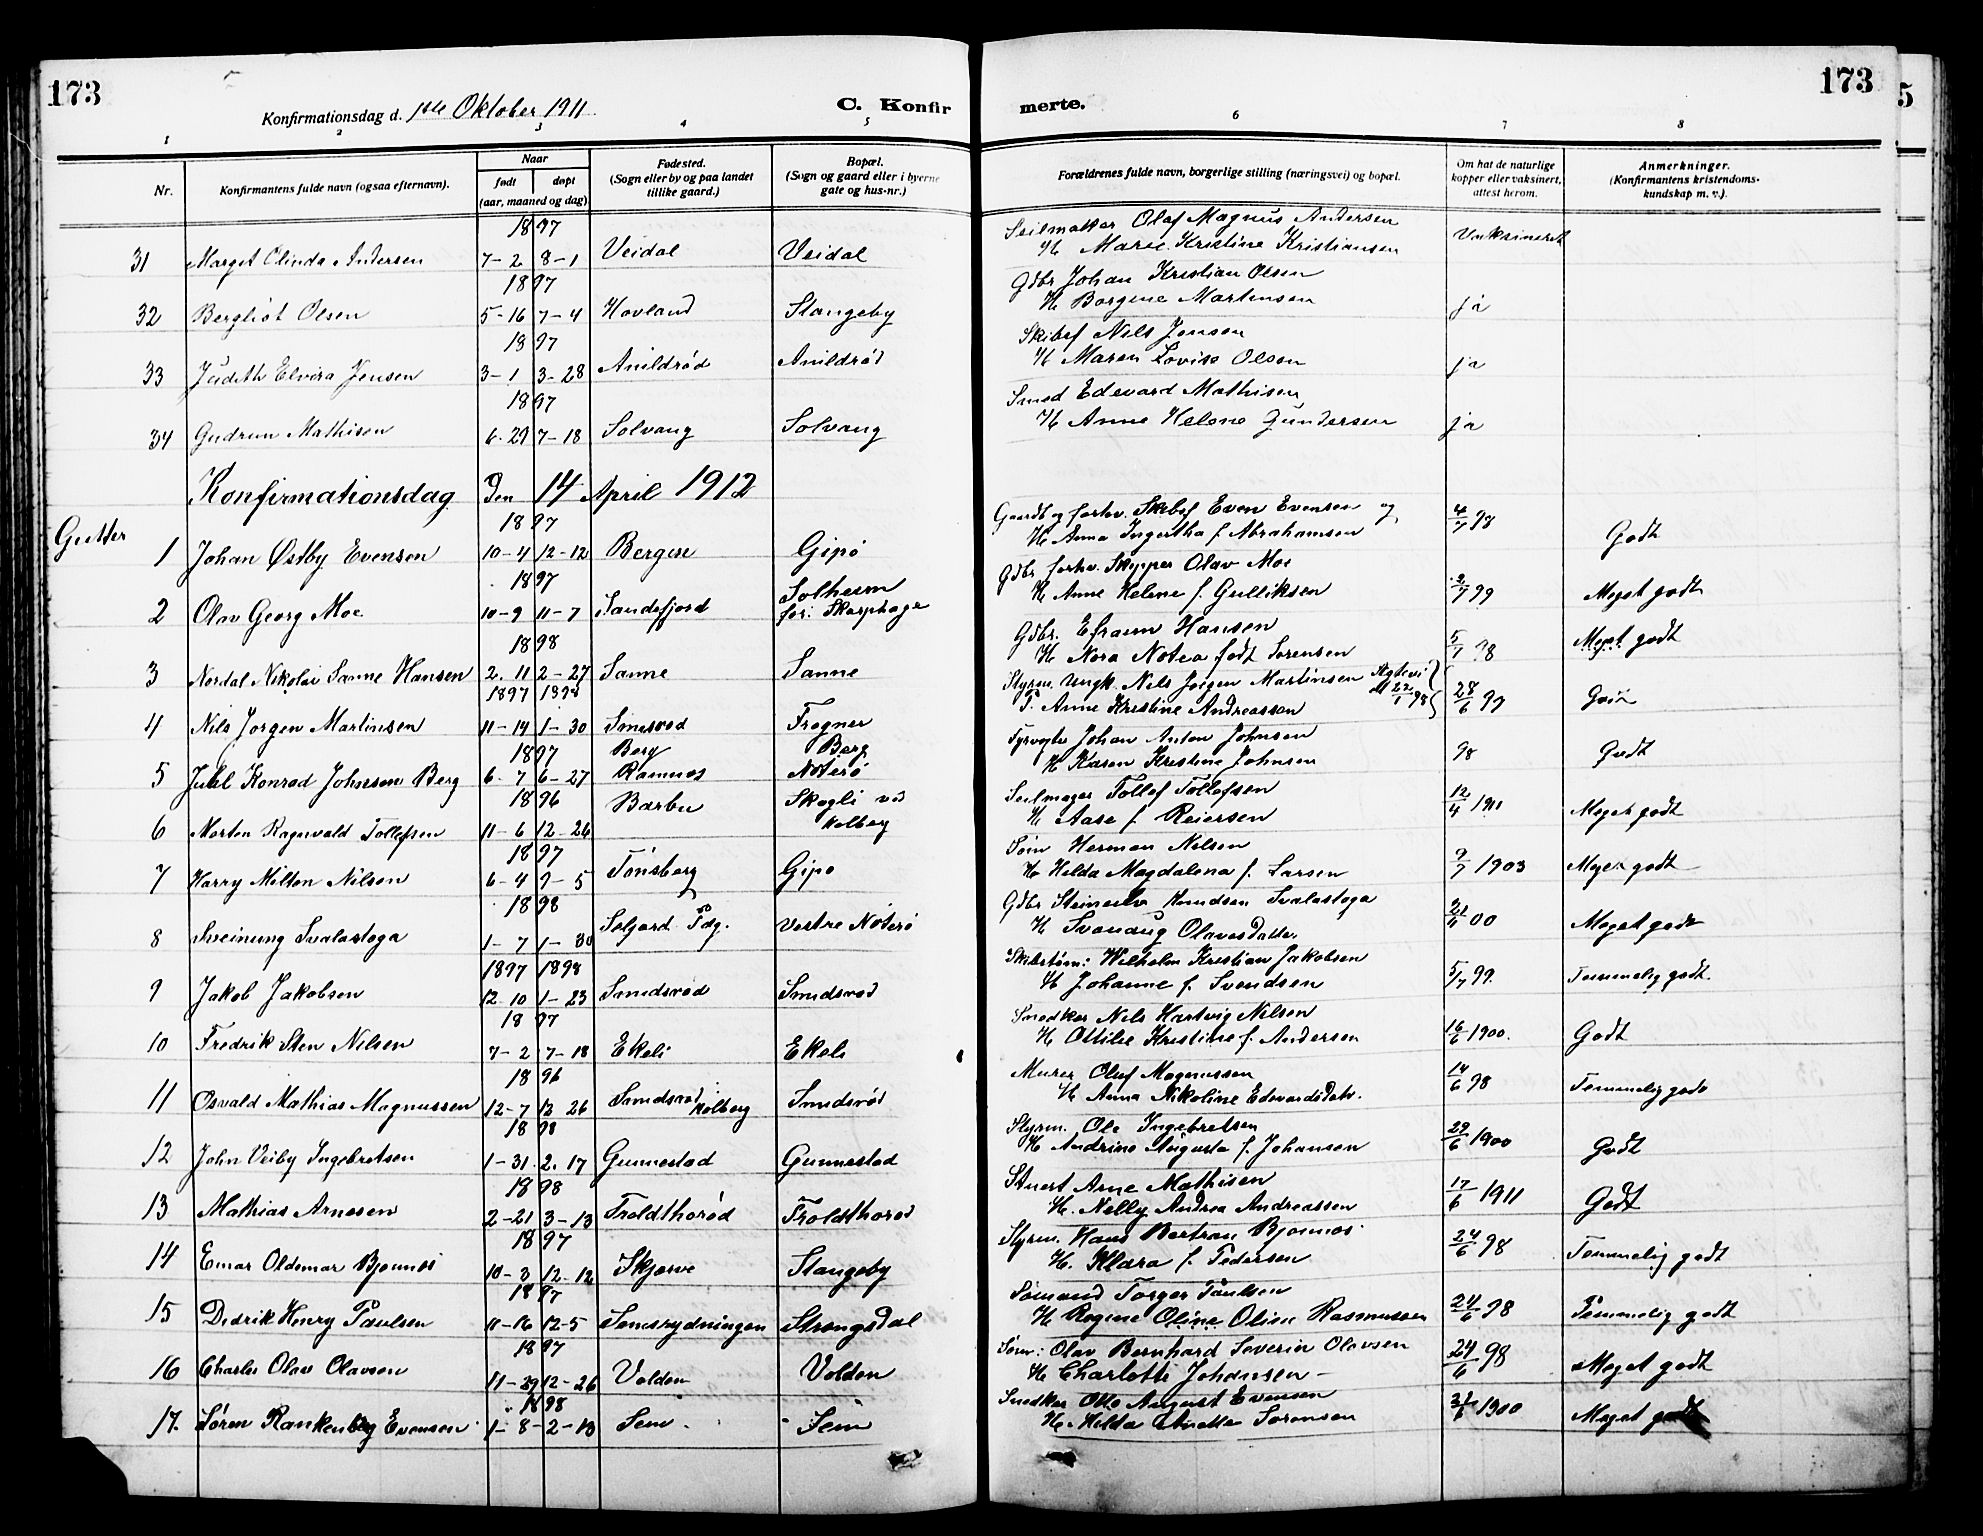 173
Konfirmationsdag d. 1ste Oktober 1911.
C. Konfir
merte.
173
5
1 2 3 4 5 6 7 8
Nr. Konfirmantens fulde navn (ogsaa efternavn). Naar født døpt (aar, maaned og dag) Fødested. (Sogn eller by og paa landet tillike gaard.) Bopæl. (Sogn og gaard eller i byerne gate og hus-nr.) Forældrenes fulde navn, borgerlige stilling (næringsvei) og bopæl. Om hat de naturlige kopper eller vaksinert, attest herom. Anmerkninger. (Konfirmantens kristendomskundskap m. v.).
1897 Seilmaker Olaf Magnus Andersen
31 Margit Olinda Andersen 7-2 8-1 Veidal Veidal H Marie Kristine Kristiansen Vaksineret
1897 Gdbr Johan Kristian Olsen
32 Bergliot Olsen 5-16 7-4 Hovland Stangeby H Borgine Martinsen ja
1897 Skibsf Nils Jensen
33 Judith Elvira Jensen 3-1 3-28 Anildrød Anildrød H Maren Lovise Olsen ja
1897 Smed Edevard Mathisen
34 Gudrun Mathisen 6-29 7-18 Solvang Solvang H Anne Helene Gundersen ja
Konfirmationsdag Den 14 April 1912
Gutter
1897 Gaardb og forhv. Skibsf Even Evensen og
1 Johan Østby Evensen 10-4 12-12 Bergen Gipø H Anna Ingertha f Abrahamsen 4/7 98 Godt
1897 Gdbr forhv. Skipper Olav Moe
2 Olav Georg Moe 10-9 11-7 Sandefjord Solheim for: Skarphage H Anne Helene f. Gulliksen 3/7 99 Meget godt
1898 Gdbr. Efraim Hansen
3 Nordal Nikolai Sanne Hansen 2. 11 2-27 Sanne Sanne H Nora Notea født Sørensen 5/7 98 Meget godt
1897 1898 Styrm. Ungk. Nils Jørgen Martinsen
4 Nils Jørgen Martinsen 11-14 1-30 Smidsrød Frogner P. Anne Kristine Andreassen 28/6 99 Godt
1897 Berg Berg Fyrvogter Johan Anton Johnsen
5 Juhl Konrad Johnsen Berg 6-7 6-27 Ramnes Nøterø H Karen Kristine Johnsen 98 Godt
1896 Barbu Skogli ved Kolberg Seilmager Tollef Tollefsen
6 Morten Ragnvald Tollefsen 11-6 12-26 H Aase f. Reiersen 12/4 1911 Meget godt
1897 Søm Herman Nilsen
7 Harry Milton Nilsen 6-4 9-5 Tønsberg Gipø H Hilda Magdalena f. Larsen 9/7 1903 Meget godt
1898 Gdbr Steinulv Knudsen Svalastoga
8 Sveinung Svalastoga 1-7 1-30 Seljord Pdg. Vestre Nøterø H Svanaug Olavsdatter 00 Meget godt
1897 1898 Skibstøm: Wilhelm Kristian Jakobsen
9 Jakob Jakobsen 12. 10 1-23 Smidsrød Smidsrød H Johanne f. Svendsen 5/7 99. Temmelig godt.
1897 Snedker Nils Hartvig Nilsen
10 Fredrik Sten Nilsen 7-2 7-18 Ekeli Ekeli H Ottilie Kristine f. Andersen 16/6 1900. Godt
1896 Murer Oluf Magnussen
11 Osvald Mathias Magnussen 12-7 12 26 Smidsrød Kolberg Smidsrød H Anna Nikoline Edevardsdatr. 14/6 98 Temmelig godt
1898 Styrm. Ole Ingebretsen
12 John Veiby Ingebretsen 1-31. 2. 17 Gunnestad Gunnestad H Andrine Augusta f. Johansen 29/6 1900 Godt
1898 Stuert Arne Mathisen
13 Mathias Arnesen 2-21 3-13 Troldthorød Troldthorød H. Nelly Andrea Andreassen 17/6 1911 Godt
1897 Styrm. Hans Bertran Bjønnes
14 Einar Oldemar Bjønnes 10-3 12-12 Skjerve Stangeby H. Klara f. Pedersen 24/6 98 Temmelig godt
1897 Sømand Torger Paulsen
15 Didrik Henry Paulsen 11-16 12-5 Semsrydningen Strengsdal H Regine Oline Olise Rasmussen 24/6 98 Temmelig godt
1897 Søm: Olav Bernhard Severin Olavsen
16 Charles Olav Olavsen 11-29 12-26 Volden Volden H Charlotte Johansen - 24/6 98 Meget godt
1898 Snedker Otto August Evensen
17. Søren Rankenberg Evensen 1-8-2-13 Sem Sem H. Hilda Anetta Sørensen 1900 Meget godt